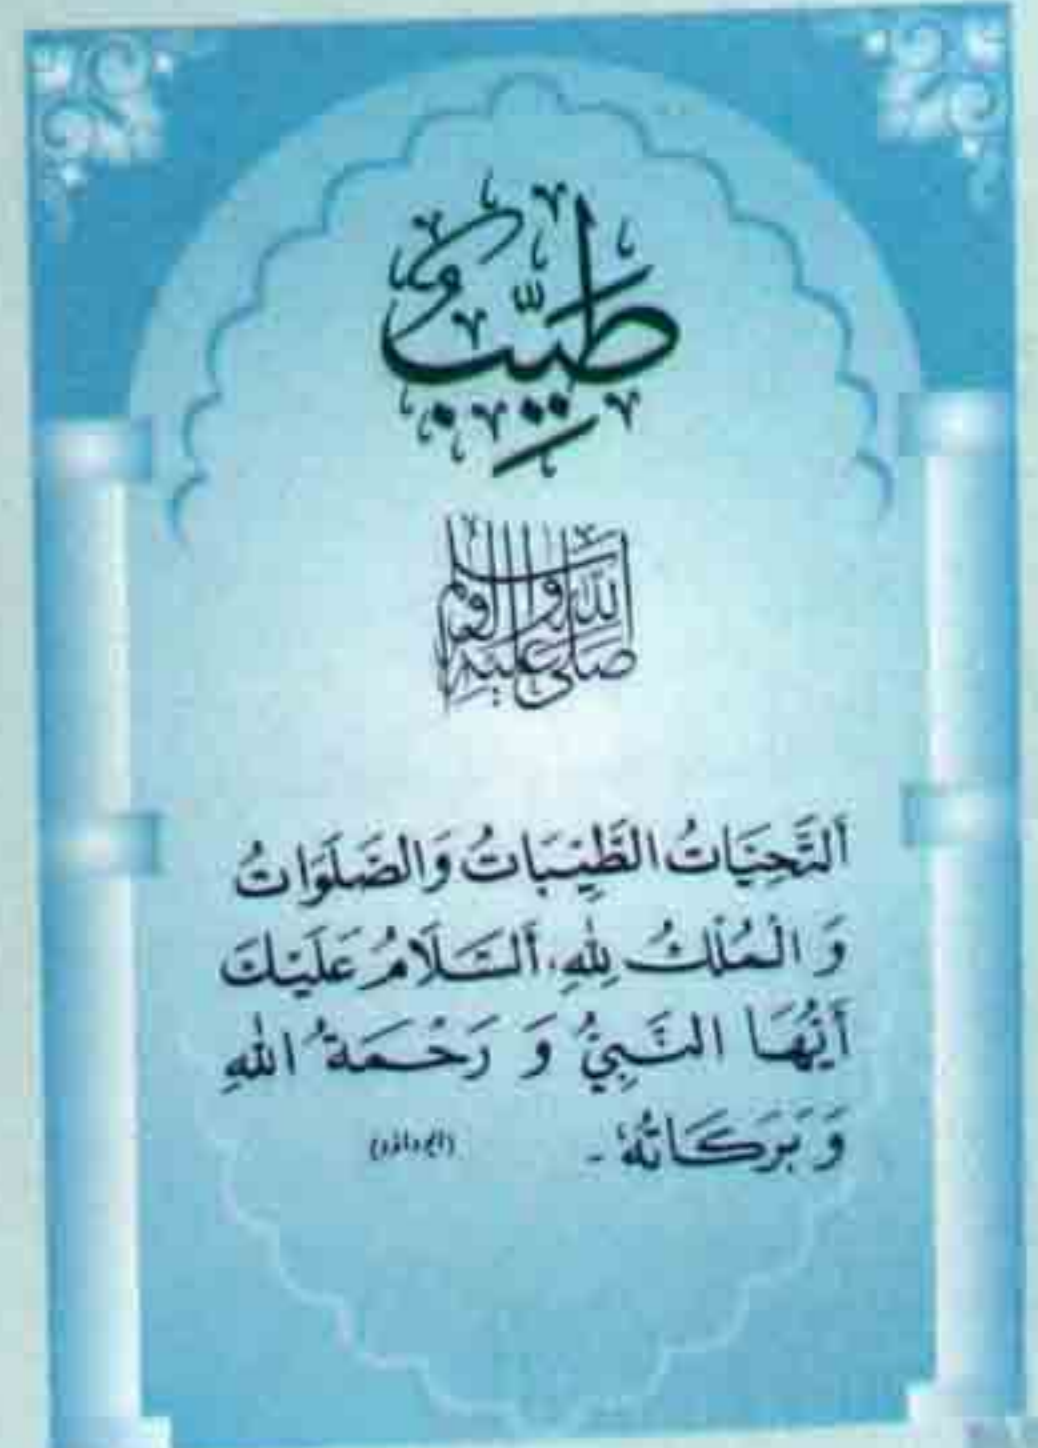 طَيِّبٌ
صلى الله عليه وآله وسلم
أَلتَّحِيَّاتُ الطَّيِّبَاتُ وَالصَّلَوَاتُ
وَ الْمُلْكُ لِلّٰهِ، أَلسَّلَامُ عَلَيْكَ
أَيُّهَا النَّبِيُّ وَ رَحْمَةُ اللهِ
وَ بَرَكَاتُهٗ ۔ (ابو داؤد)